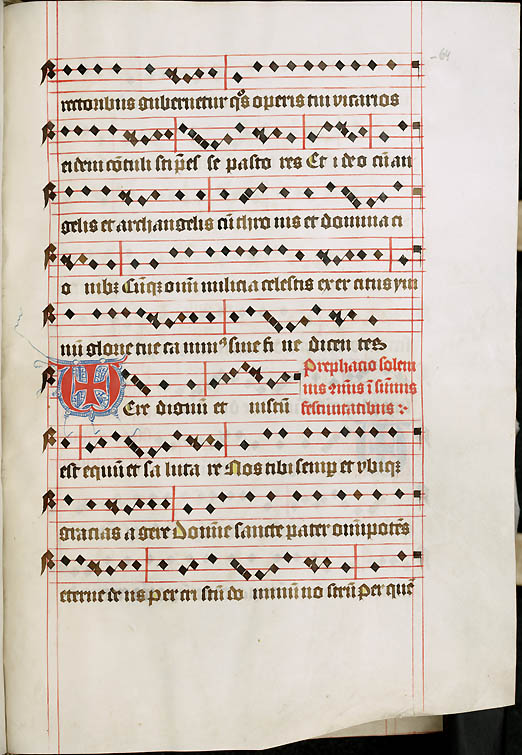 64
rectoribus gubernetur q̄s operis tui vicarios
eidem cōtuli sti p̄es se pasto res Et i de o cū an
gelis et archangelis cū thro nis et domina ti
o nibꝫ Cūqꝫ om̄i militia celestis ex er citus ym
nū glorie tue ca nimꝰ sine fi ne dicen tes
Prephacio solem
nis
festiuitatibus
Ere dignū et iustū
est equū et sa luta re Nos tibi semp et vbiqꝫ
gracias a gere Domīe sancte pater om̄ipotēs
eterne de us per cri stū do minū no strū Per quē